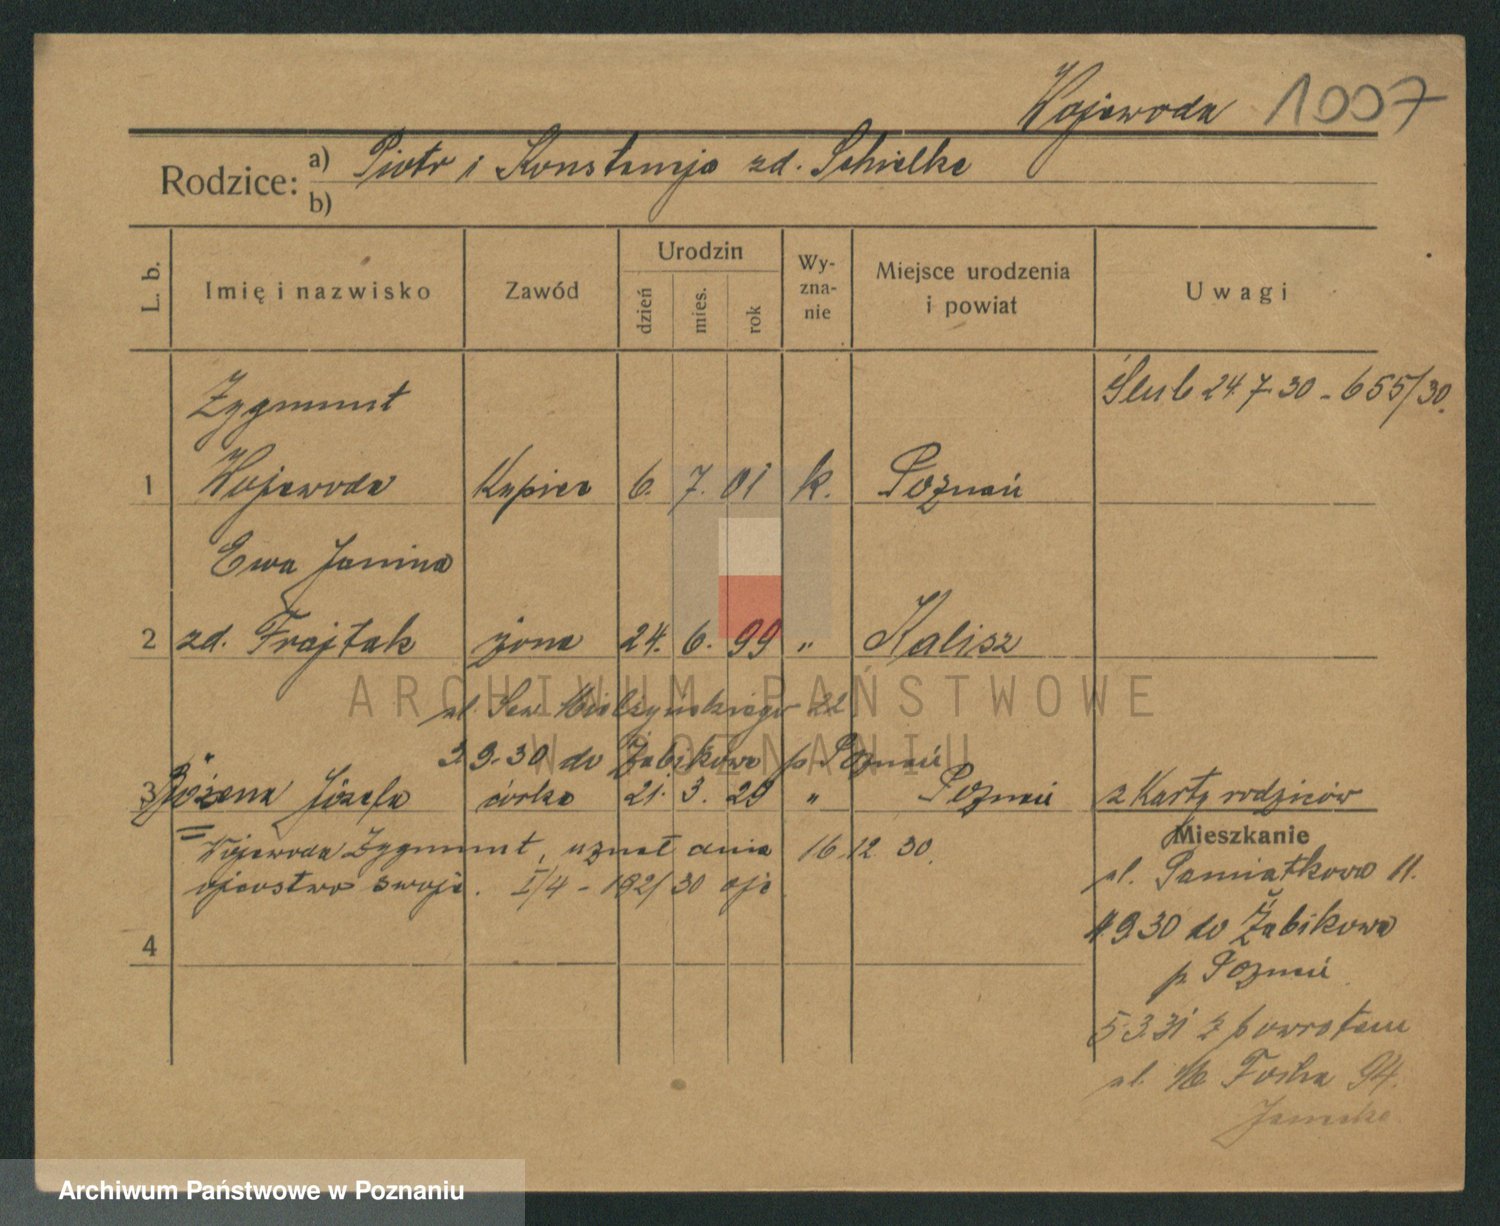 Wojewoda 1007
Rodzice: a) Piotr i Konstancja zd. Schielke
b)
L. b. Imię i nazwisko Zawód Urodzin dzień mies. rok Wyznanie Miejsce urodzenia i powiat Uwagi
Zygmunt Ślub 24 7 30 - 655/30.
1 Wojewoda Kupiec 6. 7. 01 k. Poznań
Ewa Janina
2 zd. Frajtak żona 24. 6. 99 „ Kalisz
ARCHIWUM PAŃSTWOWE
ul. Sew. Mielżyńskiego 22
W POZNANIU
3.9.30 do Żabikowa p Poznań
3 Bożena Józefa córka 21. 3. 29 „ Poznań z Karty rodziców
Mieszkanie
Wojewoda Zygmunt, uznał dnia 16 12 30.
ul. Pamiątkowa 11.
ojcostwo swoje. I/4 - 182/30
9.30 do Żabikowa
4
p. Poznań
5.3.31 z powrotem
ul. M Focha 94.
Archiwum Państwowe w Poznaniu